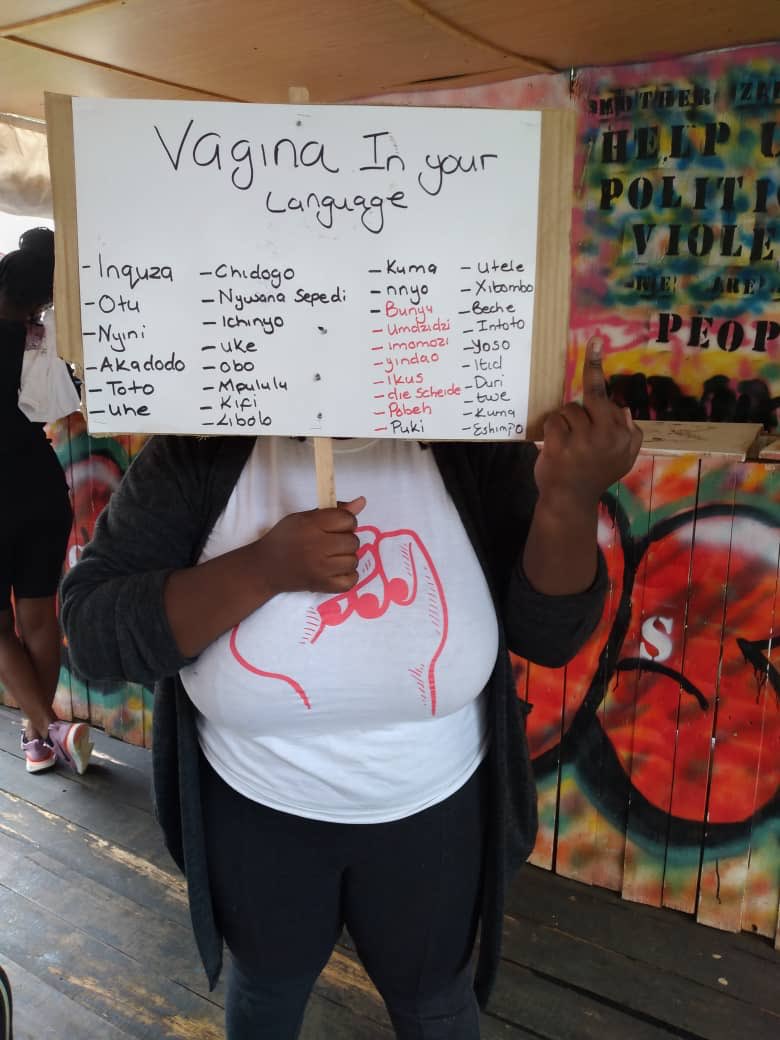 Vagina In your
Language
- Inquza
- Otu
- Nyini
- Akadodo
- Toto
- uhe
- Chidogo
- Nyusana Sepedi
- Ichinyo
- uke
- obo
- Mpululu
- Kifi
- Libolo
- Kuma
- nnyo
- Bunyu
- umdzidzi
- imomozi
- yindao
- ikus
- die Scheide
- Pobeh
- Puki
- utele
- Xibombo
- Beche
- Intoto
- yoso
- Duri
- twe
- Kuma
- Eshimpo
MOTHER
HELP
POLITI
VIOLE
WE ARE
PEOP
S